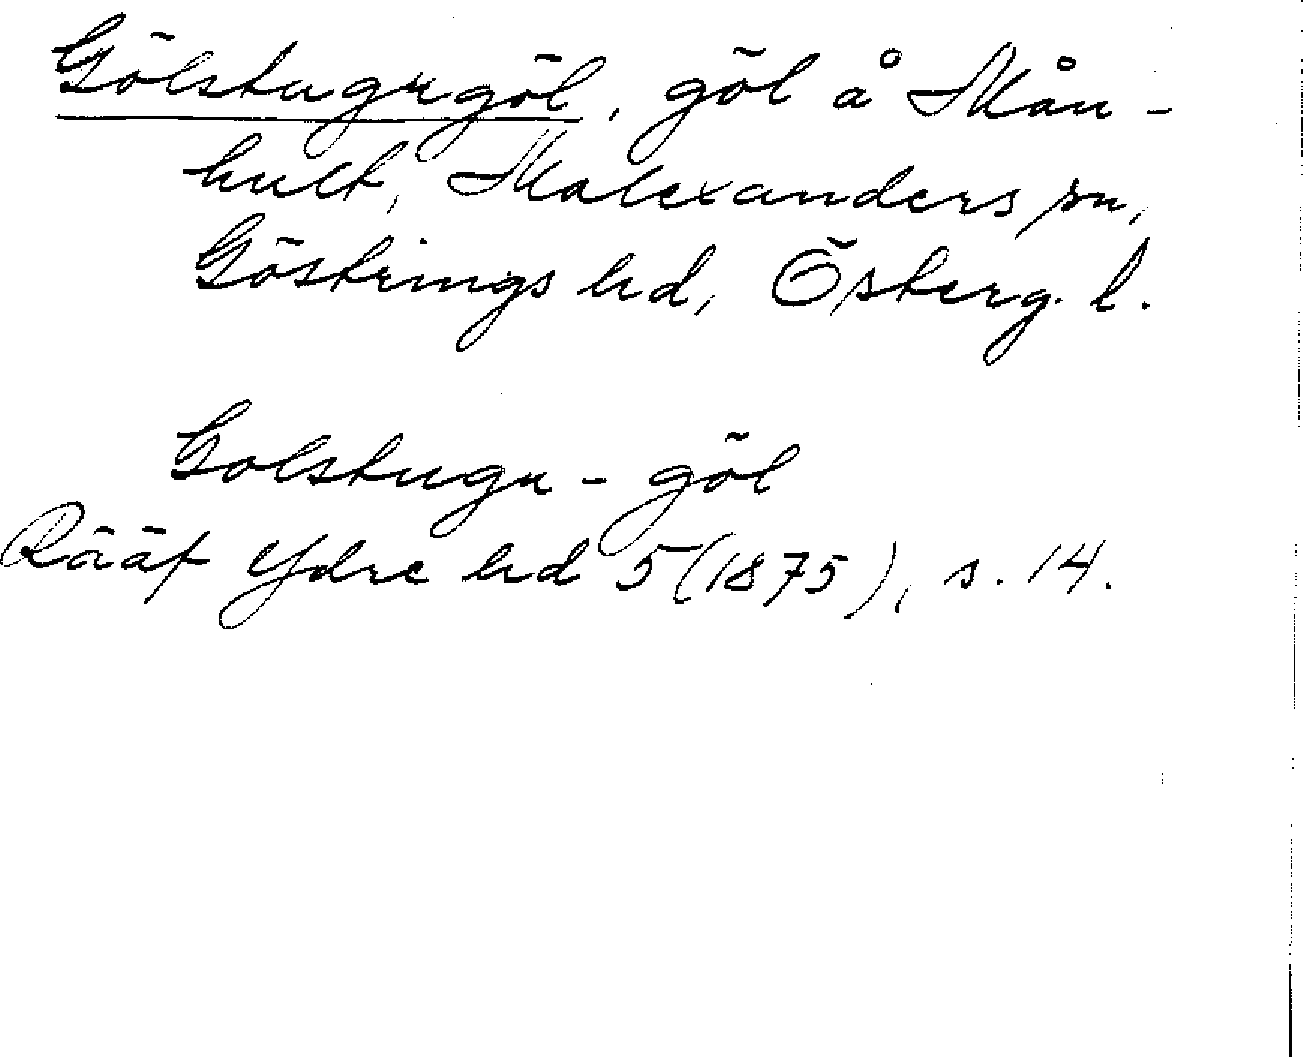 Gölstugugöl, göl å Mån-
hult, Malexanders sn,
Göstrings hd, Österg. l.
Golstugu-göl
Rääf Ydre hd 5 (1875), s. 14.